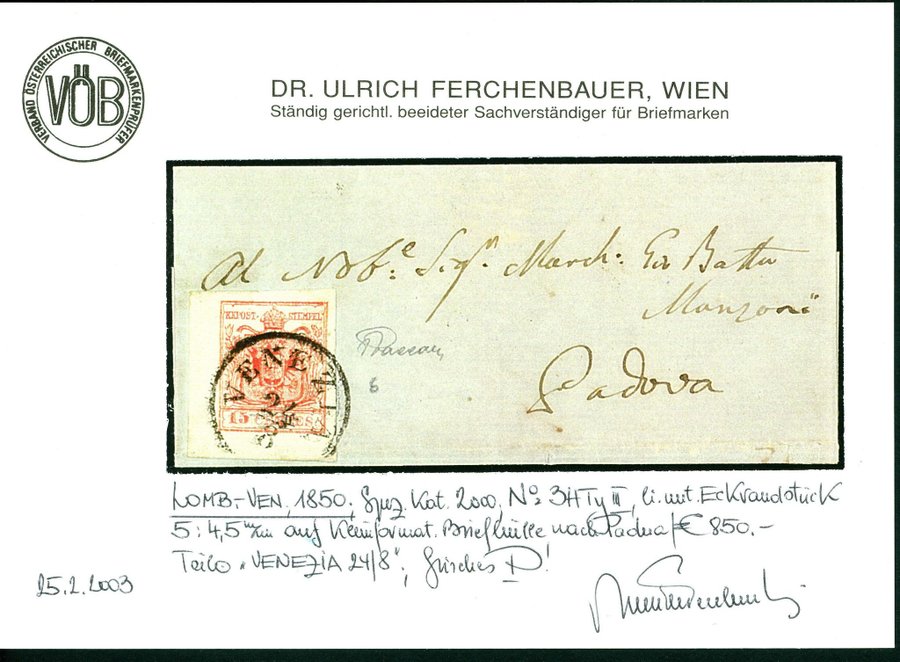 VERBAND ÖSTERREICHISCHER BRIEFMARKENPRÜFER
VÖB
DR. ULRICH FERCHENBAUER, WIEN
Ständig gerichtl. beeideter Sachverständiger für Briefmarken
Al Nobe: Sigr. March: Gio Batta
Manzoni
Padova
KKPOST-STEMPEL
VENEZIA
15
LOMB.-VEN, 1850, Spez. Kat. 2000, No 3HTyIII, li. unt. Eckrandstück
5:4,5 mm auf kleinformat. Briefhülle nach Padua/€ 850.-
"VENEZIA 24/8", frisches
25.2.2003